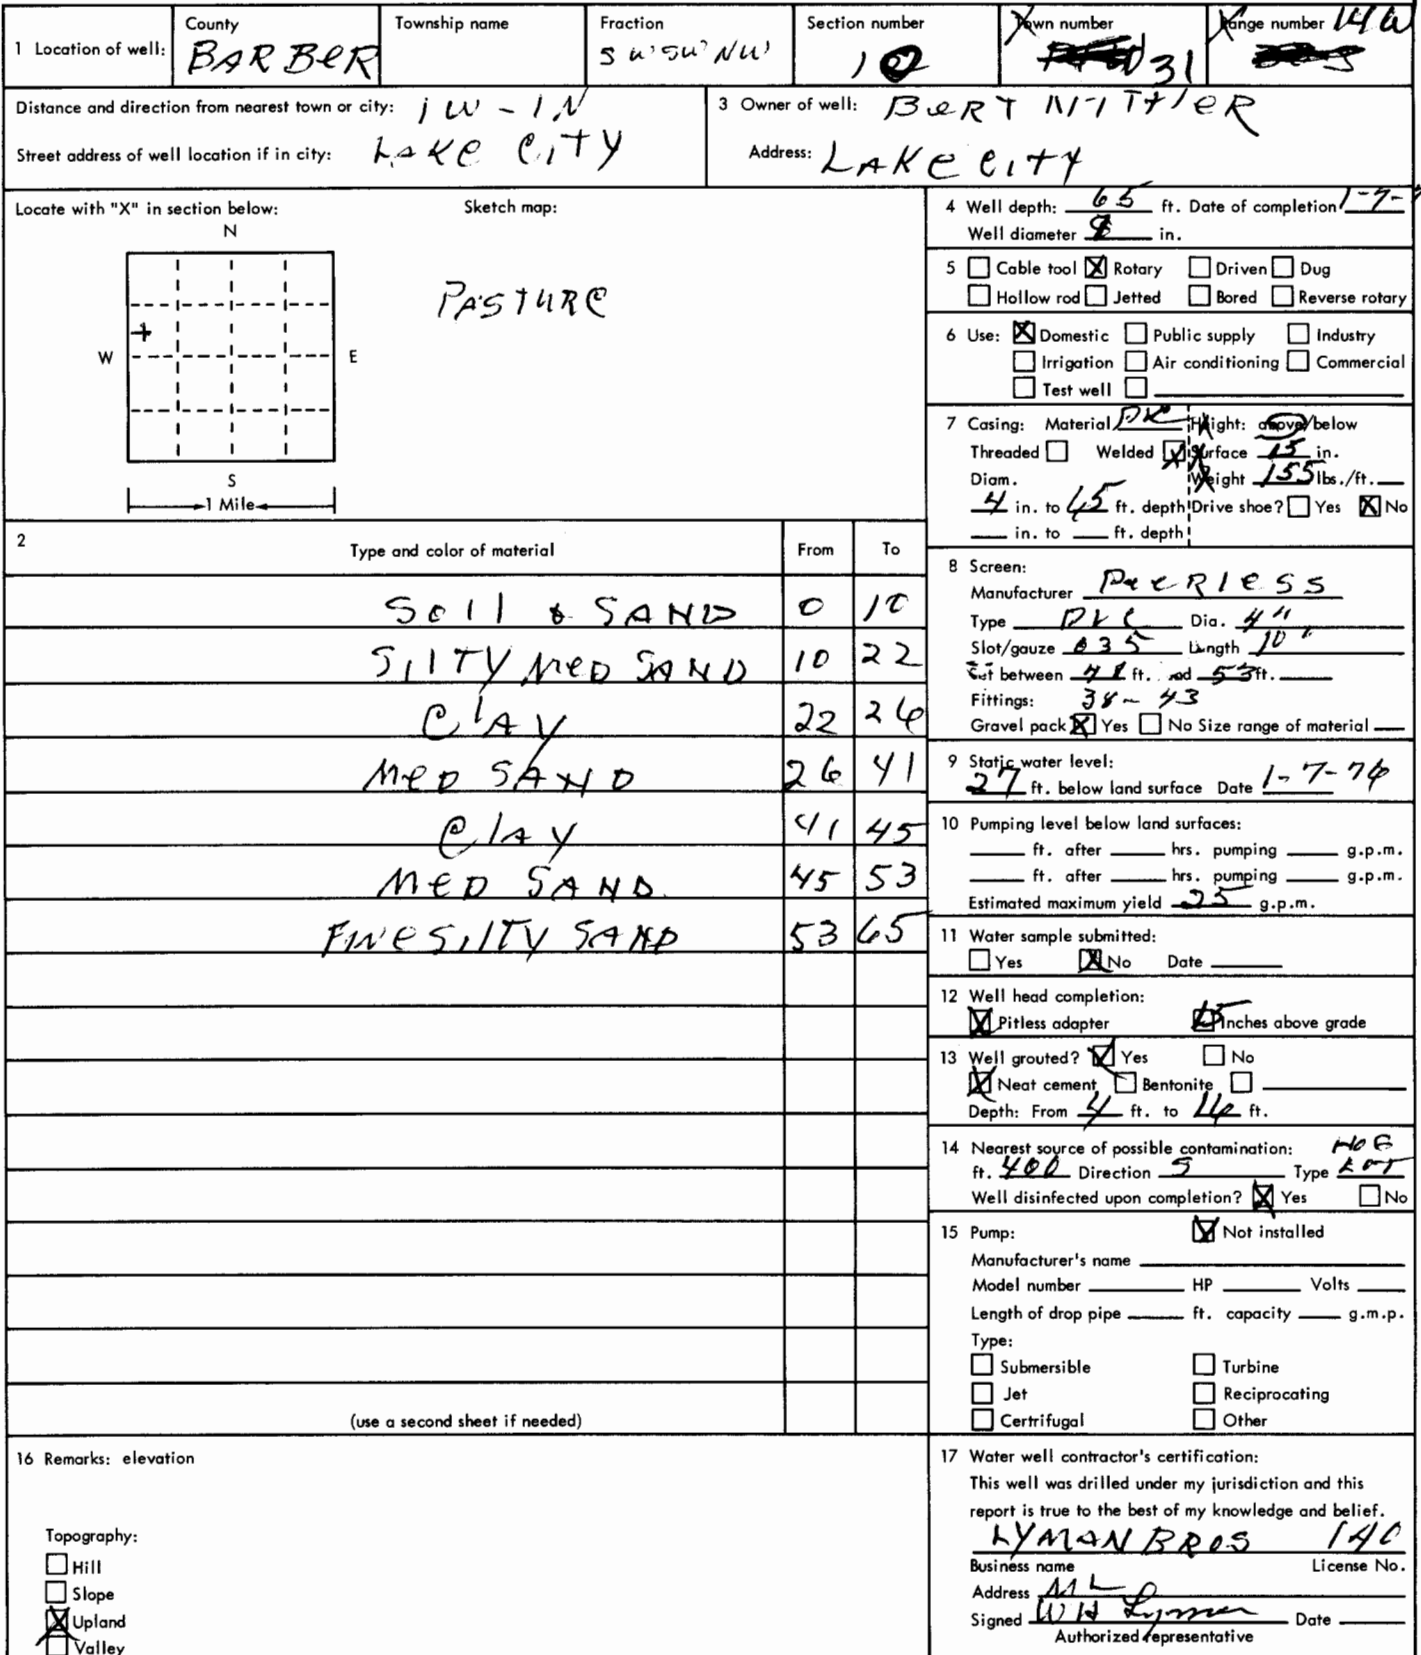 1 Location of well: County BARBER Township name Fraction SW SW NW Section number 10 Town number 31 Range number 14W
Distance and direction from nearest town or city: 1W - 1N
Street address of well location if in city: LAKE CITY
3 Owner of well: BERT
Address: LAKE CITY
Locate with "X" in section below: Sketch map:
N
PASTURE
W E
S
1 Mile
4 Well depth: 65 ft. Date of completion 1-7-
Well diameter in.
5 Cable tool X Rotary Driven Dug
Hollow rod Jetted Bored Reverse rotary
6 Use: X Domestic Public supply Industry
Irrigation Air conditioning Commercial
Test well
7 Casing: Material Height: above/below
Threaded Welded X Surface 15 in.
Diam. Weight 155 lbs./ft.
4 in. to 65 ft. depth Drive shoe? Yes X No
in. to ft. depth
2 Type and color of material From To
SOIL & SAND 0 10
SILTY MED SAND 10 22
CLAY 22 26
MED SAND 26 41
CLAY 41 45
MED SAND 45 53
FINE SILTY SAND 53 65
(use a second sheet if needed)
8 Screen:
Manufacturer PEERLESS
Type PVC Dia. 4"
Slot/gauze 035 Length 10'
Set between ft. and 53 ft.
Fittings: 38 - 43
Gravel pack X Yes No Size range of material
9 Static water level:
27 ft. below land surface Date 1-7-76
10 Pumping level below land surfaces:
ft. after hrs. pumping g.p.m.
ft. after hrs. pumping g.p.m.
Estimated maximum yield 25 g.p.m.
11 Water sample submitted:
Yes X No Date
12 Well head completion:
X Pitless adapter 15 Inches above grade
13 Well grouted? X Yes No
X Neat cement Bentonite
Depth: From 4 ft. to 14 ft.
14 Nearest source of possible contamination: HOG
ft. 400 Direction S Type LOT
Well disinfected upon completion? X Yes No
15 Pump: X Not installed
Manufacturer's name
Model number HP Volts
Length of drop pipe ft. capacity g.m.p.
Type:
Submersible Turbine
Jet Reciprocating
Certrifugal Other
16 Remarks: elevation
Topography:
Hill
Slope
X Upland
Valley
17 Water well contractor's certification:
This well was drilled under my jurisdiction and this
report is true to the best of my knowledge and belief.
LYMAN BROS 140
Business name License No.
Address ML
Signed WH Lyman Date
Authorized representative